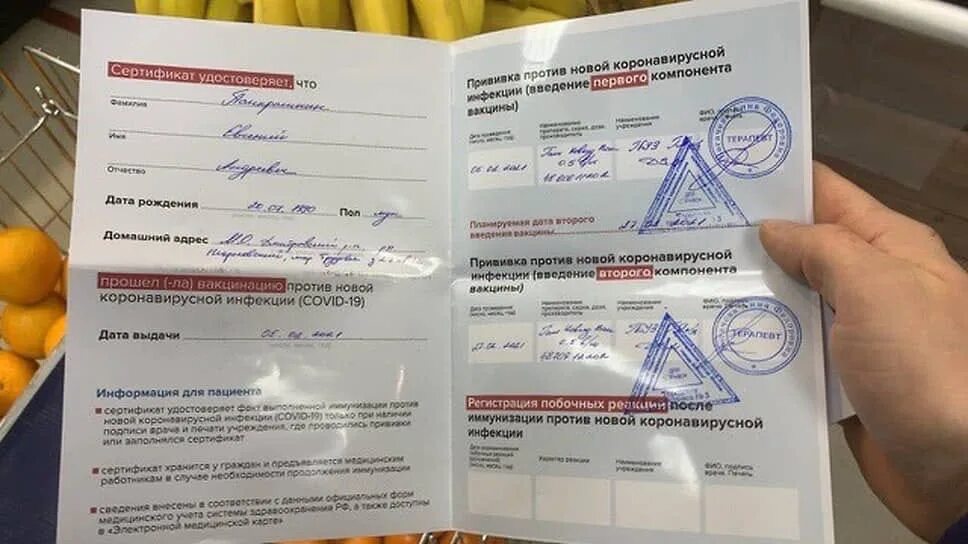 Сертификат удостоверяет, что
Фамилия
Имя Евгений
Отчество Андреевич
Дата рождения 20.07.1990 Пол муж
Домашний адрес М.О. Дмитровский
прошел (-ла) вакцинацию против новой
коронавирусной инфекции (COVID-19)
Дата выдачи 05.02.2021
Информация для пациента
сертификат удостоверяет факт выполненной иммунизации против
новой коронавирусной инфекции (COVID-19) только при наличии
подписи врача и печати учреждения, где проводились прививки
или заполнялся сертификат
сертификат хранится у граждан и предъявляется медицинским
работникам в случае необходимости продолжения иммунизации
сведения внесены в соответствии с данными официальных форм
медицинского учета системы здравоохранения РФ, а также доступны
в «Электронной медицинской карте»
Прививка против новой коронавирусной
инфекции (введение первого компонента
вакцины)
Дата проведения Наименование Наименование ФИО, подпись
(число, месяц, год) препарата, серия, доза, учреждения
производитель
Гам Ковид Вак ГБУЗ
0.5
ТЕРАПЕВТ
Планируемая дата второго
введения вакцины:
Прививка против новой коронавирусной
инфекции (введение второго компонента
вакцины)
Дата проведения Наименование Наименование ФИО, подпись
(число, месяц, год) препарата, серия, доза, учреждения
производитель
27.02.2021 Гам Ковид Вак ГБУЗ
0.5
ТЕРАПЕВТ
Регистрация побочных реакций после
иммунизации против новой коронавирусной
инфекции
Характер реакции Наименование ФИО, подпись
(число, месяц, год) учреждения врача. Печать